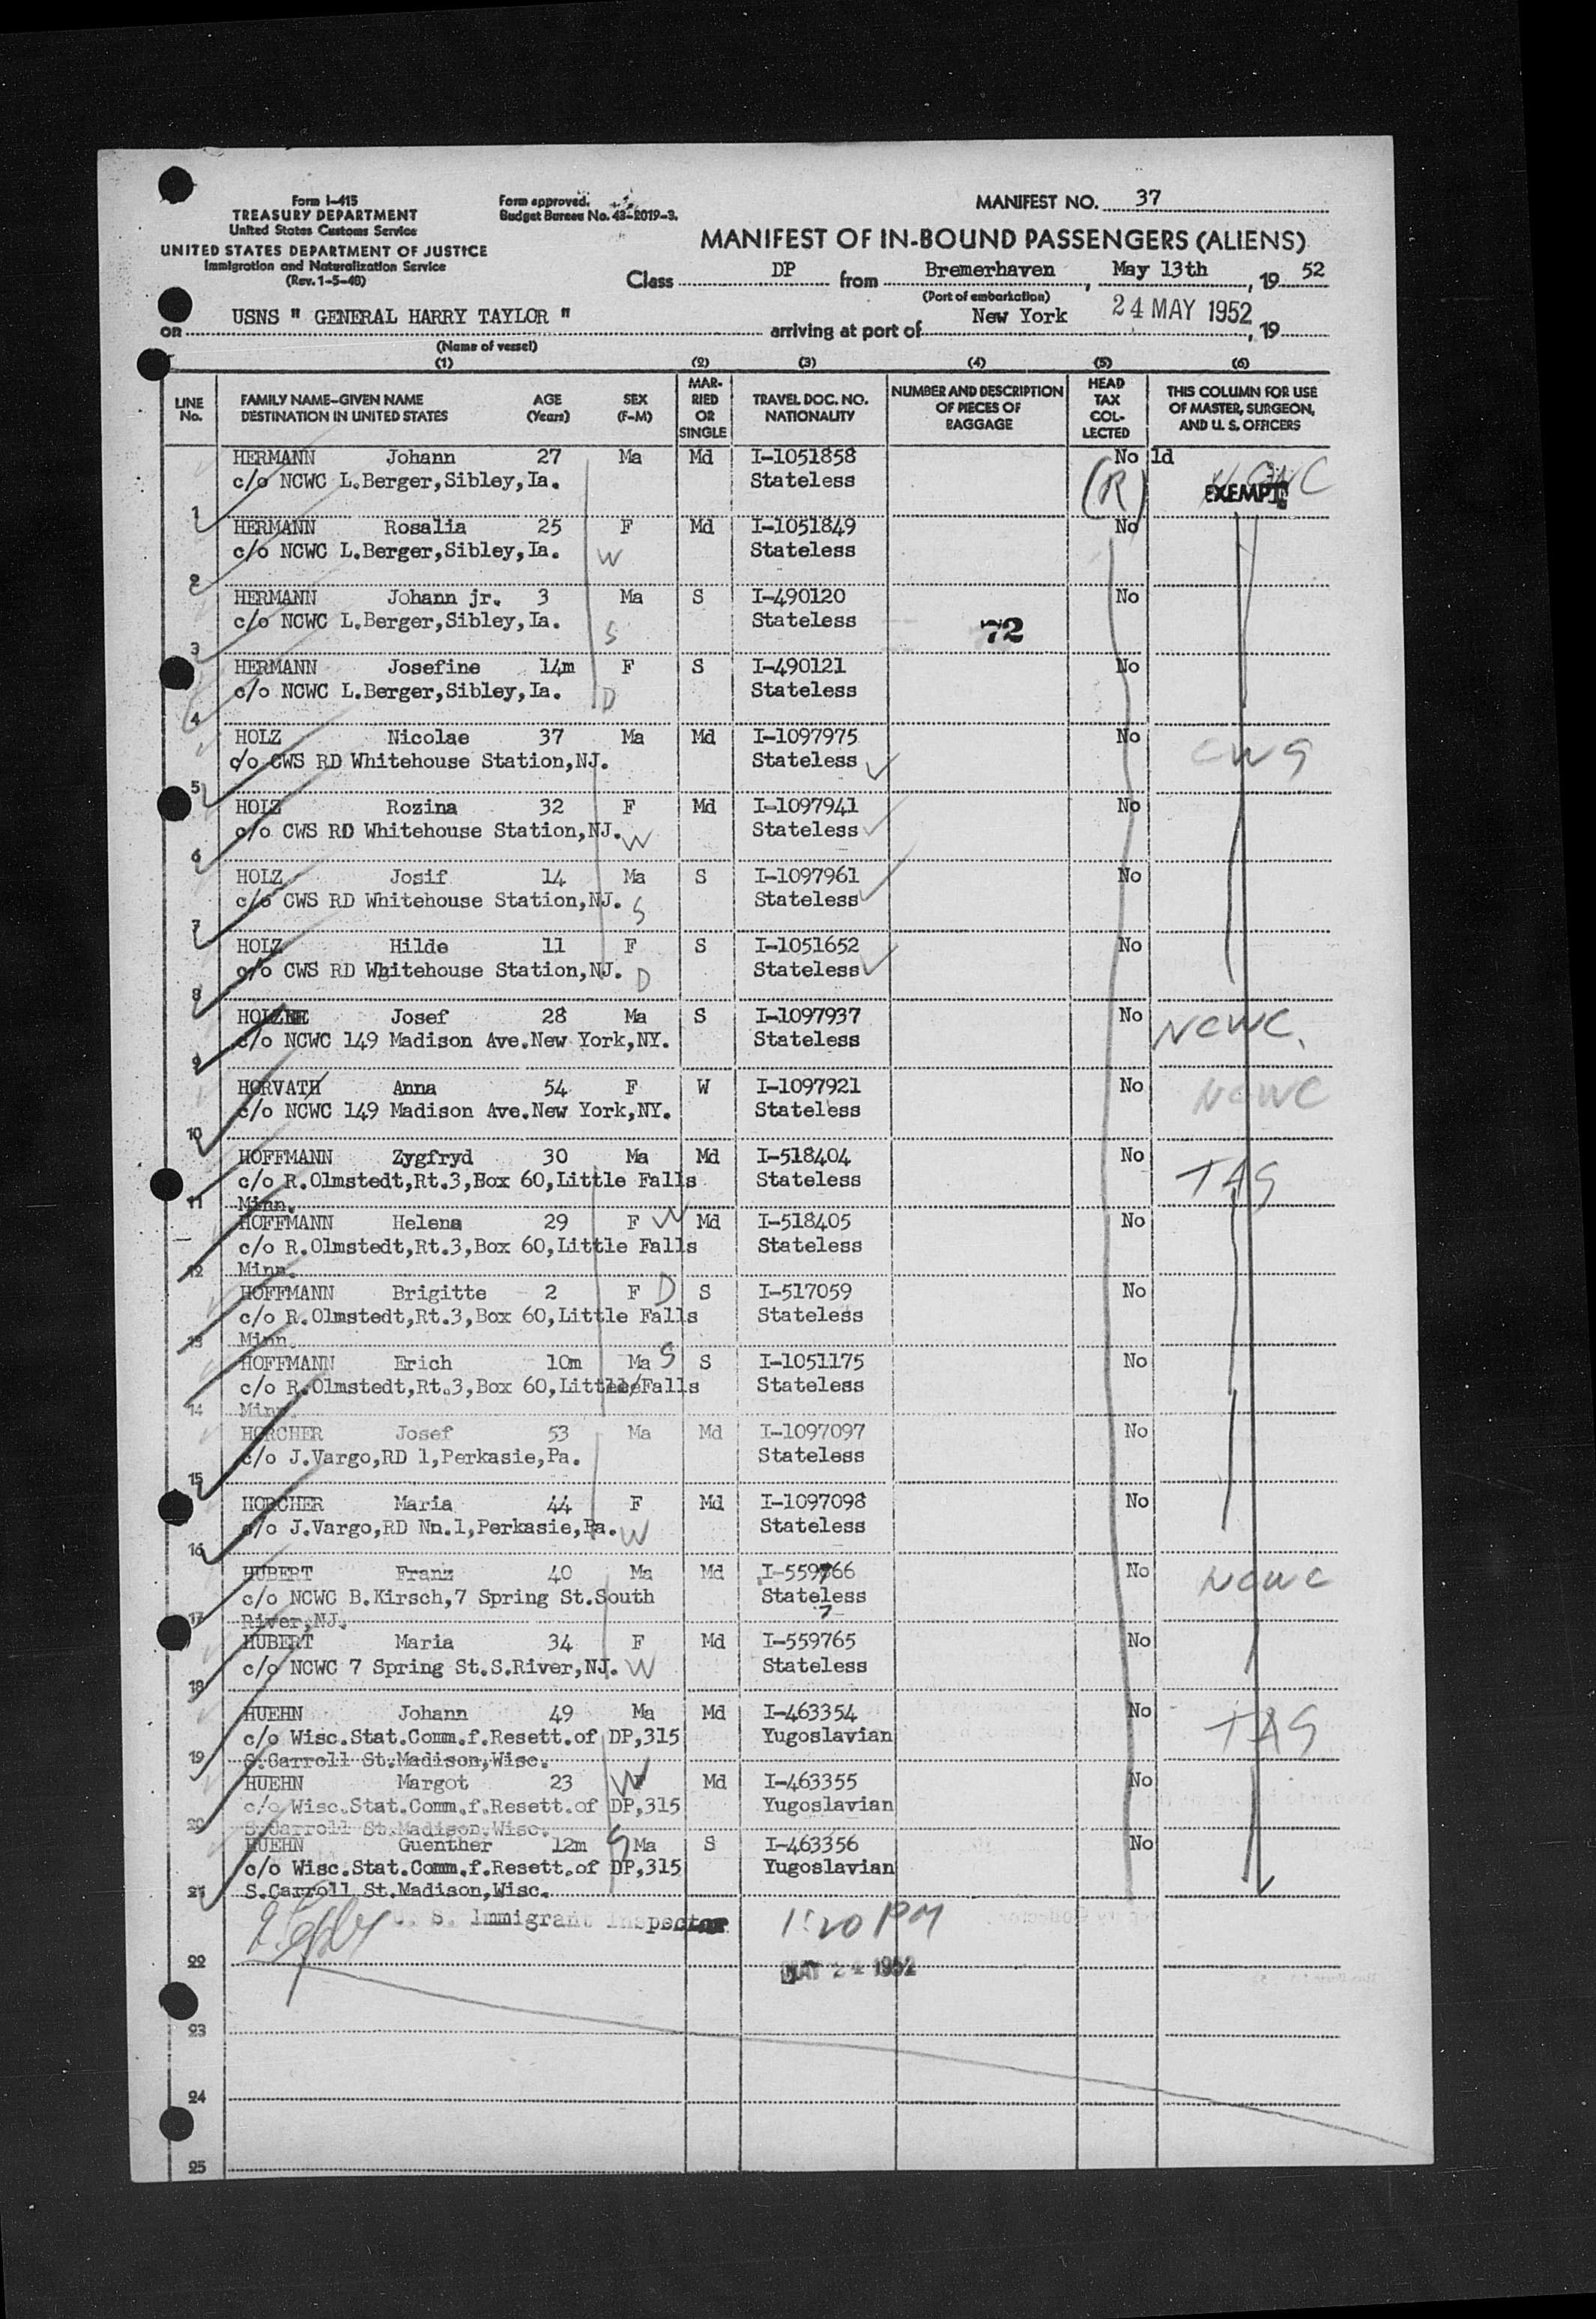 Form I-415
TREASURY DEPARTMENT
United States Customs Service
UNITED STATES DEPARTMENT OF JUSTICE
Immigration and Naturalization Service
(Rev. 1-5-48)
Form approved.
Budget Bureau No. 43-R019-3.
MANIFEST NO. 37
MANIFEST OF IN-BOUND PASSENGERS (ALIENS)
Class DP from Bremerhaven, May 13th, 19 52
(Port of embarkation)
on USNS " GENERAL HARRY TAYLOR " arriving at port of New York 24 MAY 1952, 19
(Name of vessel)
(1) (2) (3) (4) (5) (6)
LINE No. FAMILY NAME-GIVEN NAME DESTINATION IN UNITED STATES AGE (Years) SEX (F-M) MARRIED OR SINGLE TRAVEL DOC. NO. NATIONALITY NUMBER AND DESCRIPTION OF PIECES OF BAGGAGE HEAD TAX COLLECTED THIS COLUMN FOR USE OF MASTER, SURGEON, AND U. S. OFFICERS
HERMANN Johann 27 Ma Md I-1051858 No 1d
c/o NCWC L.Berger,Sibley,Ia. Stateless (R) EXEMPT
1
HERMANN Rosalia 25 F Md I-1051849 No
c/o NCWC L.Berger,Sibley,Ia. W Stateless
2
HERMANN Johann jr. 3 Ma S I-490120 No
c/o NCWC L.Berger,Sibley,Ia. S Stateless 72
3
HERMANN Josefine 14m F S I-490121 No
c/o NCWC L.Berger,Sibley,Ia. D Stateless
4
HOLZ Nicolae 37 Ma Md I-1097975 No
c/o CWS RD Whitehouse Station,NJ. Stateless CWS
5
HOLZ Rozina 32 F Md I-1097941 No
c/o CWS RD Whitehouse Station,NJ. W Stateless
6
HOLZ Josif 14 Ma S I-1097961 No
c/o CWS RD Whitehouse Station,NJ. S Stateless
7
HOLZ Hilde 11 F S I-1051652 No
c/o CWS RD Whitehouse Station,NJ. D Stateless
8
Josef 28 Ma S I-1097937 No NCWC
c/o NCWC 149 Madison Ave.New York,NY. Stateless
9
HORVATH Anna 54 F W I-1097921 No NCWC
c/o NCWC 149 Madison Ave.New York,NY. Stateless
10
HOFFMANN Zygfryd 30 Ma Md I-518404 No
c/o R.Olmstedt,Rt.3,Box 60,Little Falls Stateless TAS
11 Minn.
HOFFMANN Helena 29 F W Md I-518405 No
c/o R.Olmstedt,Rt.3,Box 60,Little Falls Stateless
12 Minn.
HOFFMANN Brigitte 2 F D S I-517059 No
c/o R.Olmstedt,Rt.3,Box 60,Little Falls Stateless
13 Minn.
HOFFMANN Erich 10m Ma S S I-1051175 No
c/o R.Olmstedt,Rt.3,Box 60, Falls Stateless
14 Minn.
HORCHER Josef 53 Ma Md I-1097097 No
c/o J.Vargo,RD 1,Perkasie,Pa. Stateless
15
HORCHER Maria 44 F Md I-1097098 No
c/o J.Vargo,RD Nn.1,Perkasie,Pa. W Stateless
16
HUBERT Franz 40 Ma Md I-559766 No NCWC
c/o NCWC B.Kirsch,7 Spring St.South Stateless
17 River,NJ. 7
HUBERT Maria 34 F Md I-559765 No
c/o NCWC 7 Spring St.S.River,NJ. W Stateless
18
HUEHN Johann 49 Ma Md I-463354 No TAS
c/o Wisc.Stat.Comm.f.Resett.of DP,315 Yugoslavian
19 S.Carroll St.Madison,Wisc.
HUEHN Margot 23 W F Md I-463355 No
c/o Wisc.Stat.Comm.f.Resett.of DP,315 Yugoslavian
20 S.Carroll St.Madison,Wisc.
HUEHN Guenther 12m S Ma S I-463356 No
c/o Wisc.Stat.Comm.f.Resett.of DP,315 Yugoslavian
21 S.Carroll St.Madison,Wisc.
U. S. Immigrant Inspector 1:20 PM
22 MAY 24 1952
23
24
25